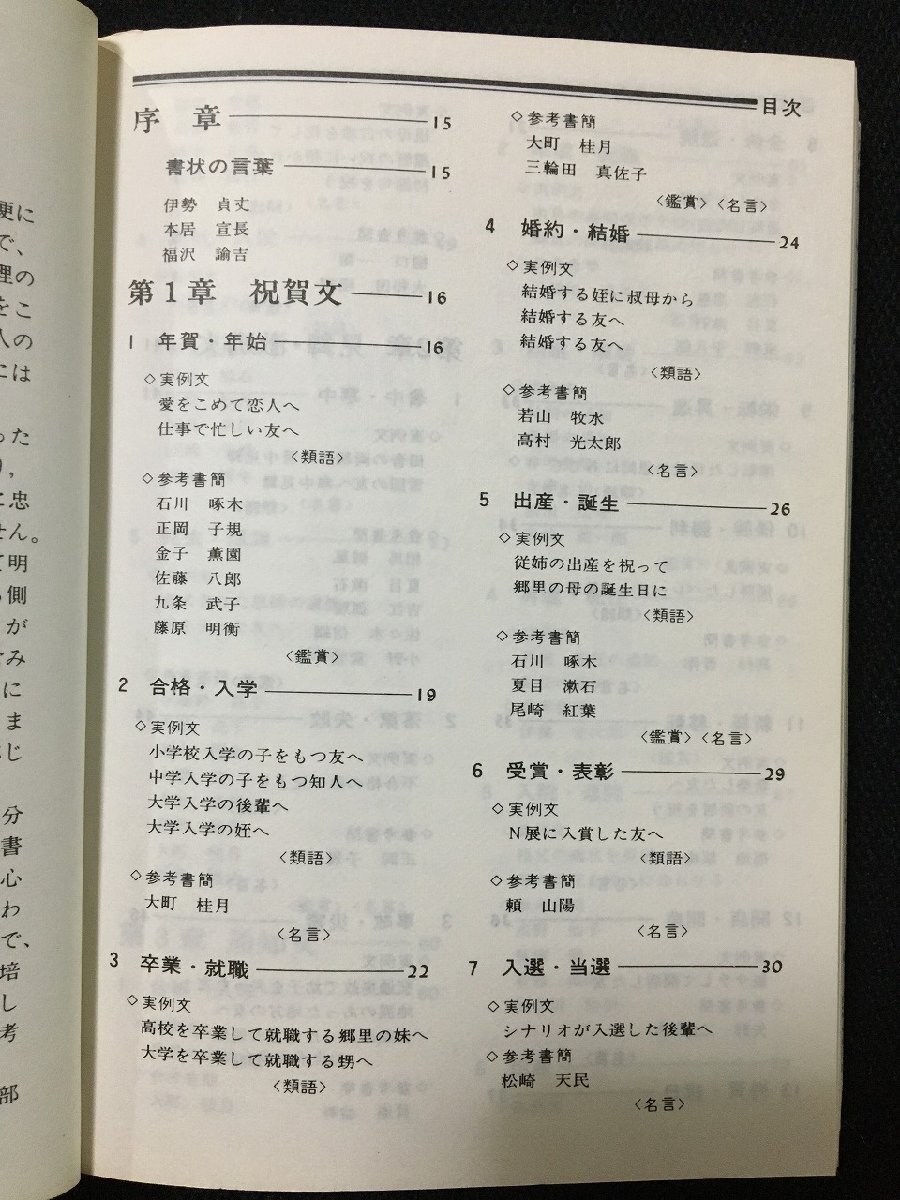 目次
序章 15
書状の言葉 15
伊勢 貞丈
本居 宣長
福沢 諭吉
第1章 祝賀文 16
1 年賀・年始 16
◇実例文
愛をこめて恋人へ
仕事で忙しい友へ
〈類語〉
◇参考書簡
石川 啄木
正岡 子規
金子 薫園
佐藤 八郎
九条 武子
藤原 明衡
〈鑑賞〉
2 合格・入学 19
◇実例文
小学校入学の子をもつ友へ
中学入学の子をもつ知人へ
大学入学の後輩へ
大学入学の姪へ
〈類語〉
◇参考書簡
大町 桂月
〈名言〉
3 卒業・就職 22
◇実例文
高校を卒業して就職する郷里の妹へ
大学を卒業して就職する甥へ
〈類語〉
◇参考書簡
大町 桂月
三輪田 真佐子
〈鑑賞〉〈名言〉
4 婚約・結婚 24
◇実例文
結婚する姪に叔母から
結婚する友へ
結婚する友へ
〈類語〉
◇参考書簡
若山 牧水
高村 光太郎
〈名言〉
5 出産・誕生 26
◇実例文
従姉の出産を祝って
郷里の母の誕生日に
〈類語〉
◇参考書簡
石川 啄木
夏目 漱石
尾崎 紅葉
〈鑑賞〉〈名言〉
6 受賞・表彰 29
◇実例文
N展に入賞した友へ
〈類語〉
◇参考書簡
頼 山陽
〈名言〉
7 入選・当選 30
◇実例文
シナリオが入選した後輩へ
◇参考書簡
松崎 天民
〈名言〉